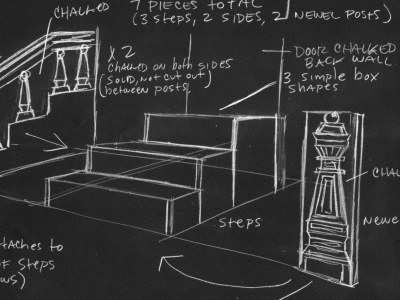 CHALKED
7 PIECES TOTAL
(3 STEPS, 2 SIDES, 2 NEWEL POSTS)
X 2
CHALKED ON BOTH SIDES
(SOLID, NOT CUT OUT)
(between posts)
DOOR CHALKED
BACK WALL
3 simple box
shapes
CHAL
NEWE
STEPS
ttaches to
OF STEPS
WS)